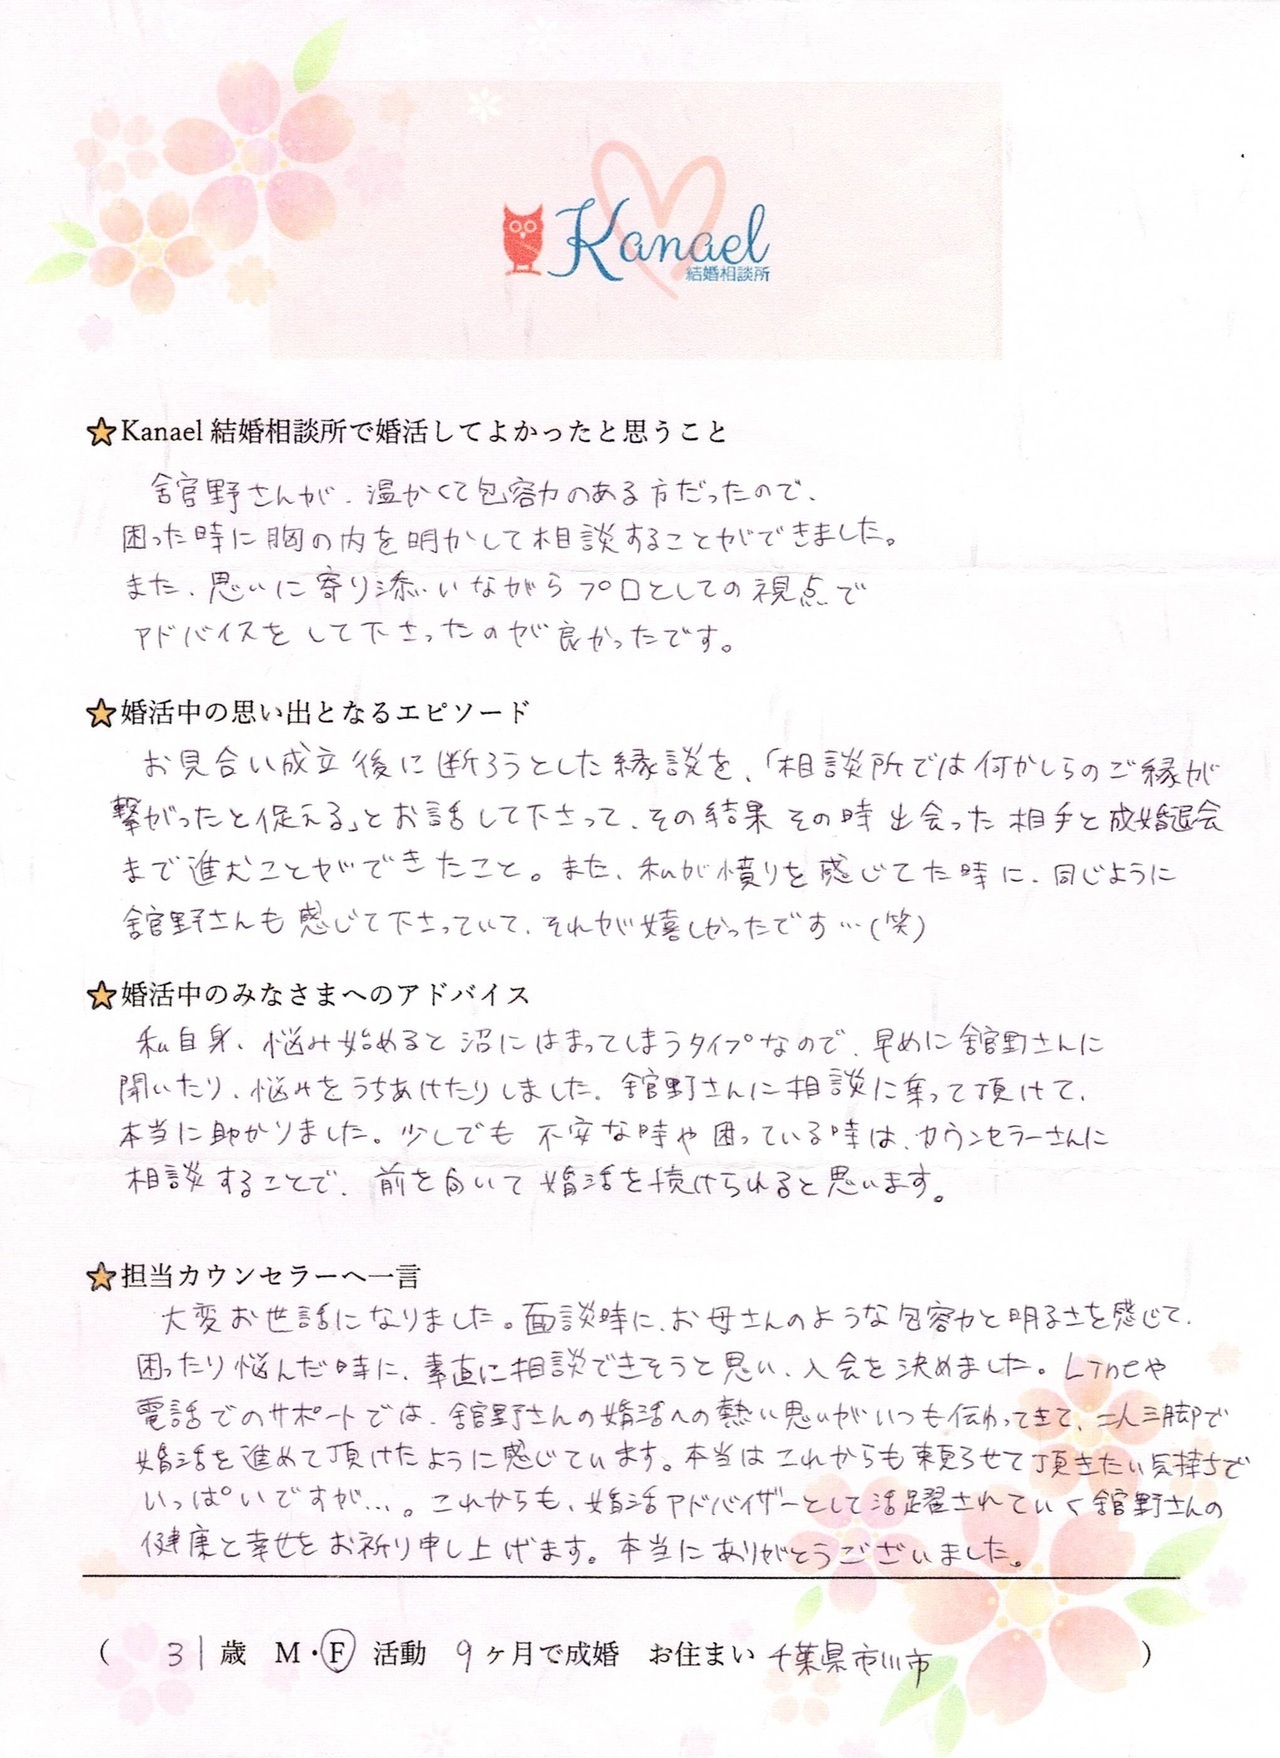 Kanael
結婚相談所
Kanael 結婚相談所で婚活してよかったと思うこと
舘野さんが、温かくて包容力のある方だったので、
困った時に胸の内を明かして相談することができました。
また、思いに寄り添いながらプロとしての視点で
アドバイスをして下さったのが良かったです。
婚活中の思い出となるエピソード
お見合い成立後に断ろうとした縁談を、「相談所では何かしらのご縁が
繋がったと捉える」とお話して下さって、その結果その時出会った相手と成婚退会
まで進むことができたこと。また、私が憤りを感じてた時に、同じように
舘野さんも感じて下さっていて、それが嬉しかったです…(笑)
婚活中のみなさまへのアドバイス
私自身、悩み始めると沼にはまってしまうタイプなので、早めに舘野さんに
聞いたり、悩みをうちあけたりしました。舘野さんに相談に乗って頂けて、
本当に助かりました。少しでも不安な時や困っている時は、カウンセラーさんに
相談することで、前を向いて婚活を続けられると思います。
担当カウンセラーへ一言
大変お世話になりました。面談時に、お母さんのような包容力と明るさを感じて、
困ったり悩んだ時に、素直に相談できそうと思い、入会を決めました。LINEや
電話でのサポートでは、舘野さんの婚活への熱い思いがいつも伝わってきて、二人三脚で
婚活を進めて頂けたように感じています。本当はこれからも頼らせて頂きたい気持ちで
いっぱいですが…。これからも、婚活アドバイザーとして活躍されていく舘野さんの
健康と幸せをお祈り申し上げます。本当にありがとうございました。
( 31歳 M・F 活動 9ヶ月で成婚 お住まい 千葉県市川市 )